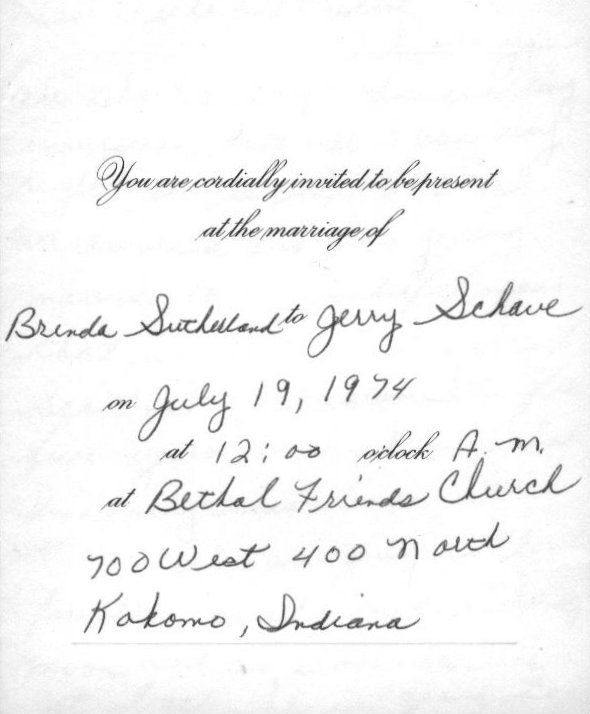 You are cordially invited to be present
at the marriage of
Brenda Sutherland to Jerry Schave
on July 19, 1974
at 12:00 o'clock A.M.
at Bethal Friends Church
700 West 400 North
Kokomo, Indiana